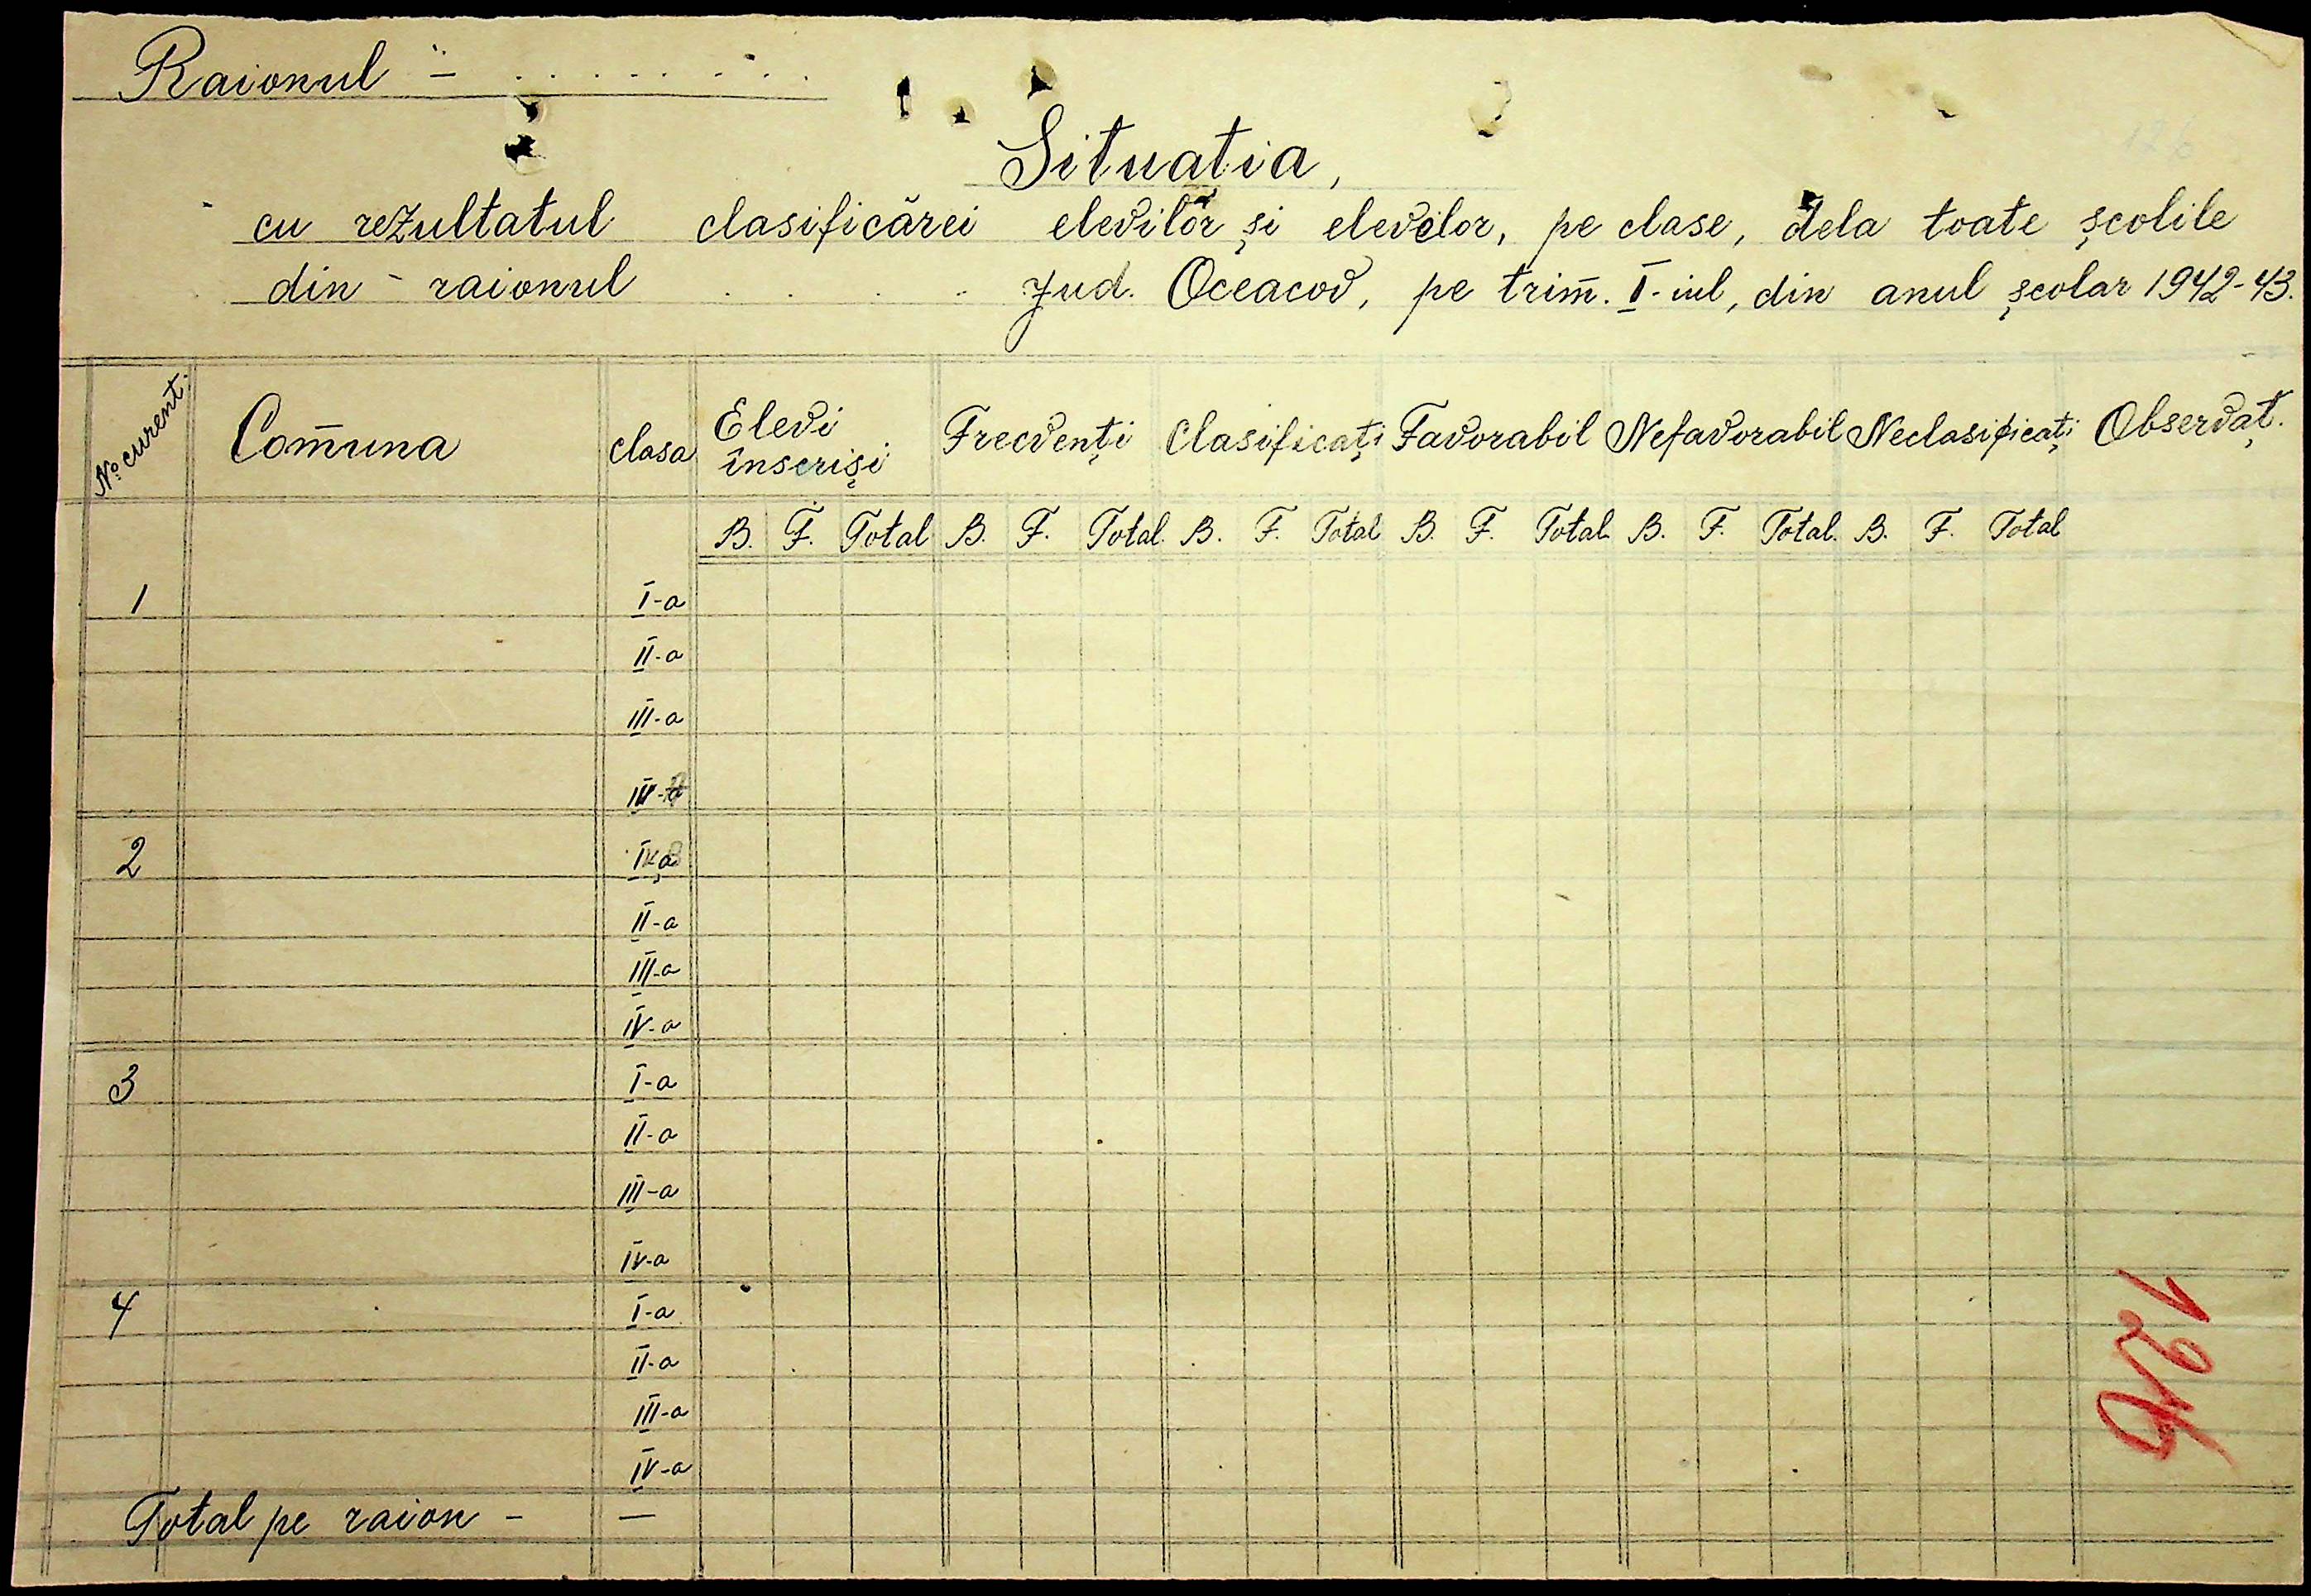 Raionul - . . . . . . . .
Situatia,
cu rezultatul clasificărei elevilor și elevelor, pe clase, dela toate școlile
din - raionul . . . . . Jud. Oceacov, pe trim̄. I-iul, din anul școlar 1942-43.
No curent. Com̄una clasa Elevi înscriși Frecvenți Clasificați Favorabil Nefavorabil Neclasificați Observaț.
B. F. Total B. F. Total. B. F. Total B. F. Total. B. F. Total. B. F. Total
1 I-a
II-a
III-a
IV-a
2 I-a
II-a
III-a
IV-a
3 I-a
II-a
III-a
IV-a
4 I-a
II-a
III-a
IV-a
Total pe raion - —